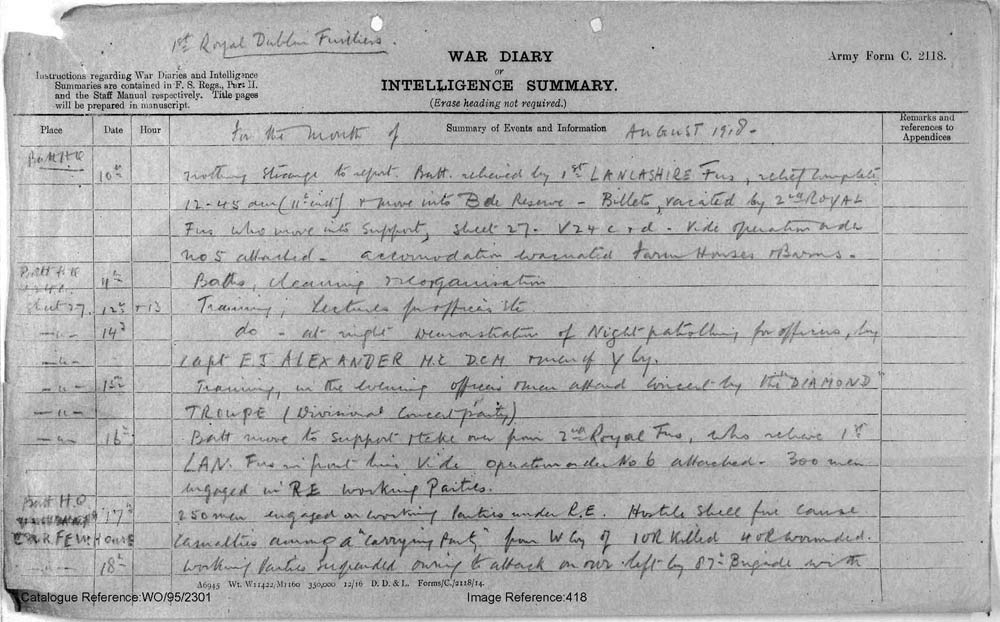 1st Royal Dublin Fusiliers.
WAR DIARY
or
INTELLIGENCE SUMMARY.
(Erase heading not required.)
Army Form C. 2118.
Instructions regarding War Diaries and Intelligence
Summaries are contained in F. S. Regs., Part II.
and the Staff Manual respectively. Title pages
will be prepared in manuscript.
Place Date Hour Summary of Events and Information Remarks and references to Appendices
For the Month of August 1918.
Batt H.Q
10th nothing strange to report. Batt. relieved by 1st LANCASHIRE Fus, relief complete
12-45 am (11th inst) & move into Bde Reserve - Billets, vacated by 2nd ROYAL
Fus who move into Support, Sheet 27. V24 c & d. Vide operation order
No 5 attached. accomodation Farm Houses & Barns.
Batt H.Q 11th Baths, cleaning reorganisation
Sheet 27. 12th & 13 Training, Lectures for officers etc
-"- 14th do - at night Demonstration of Night patrolling for officers, by
-"- Capt E J ALEXANDER M.C D.C.M & men of Y Coy.
-"- 15th Training, in the evening officers & men attend Concert by the "DIAMOND"
-"- TROUPE (Divisional Concert party)
-"- 16th Batt move to Support & take over from 2nd Royal Fus, who relieve 1st
LAN. Fus in front line Vide operation order No 6 attached. 300 men
engaged in R.E working Parties.
Batt H.Q
17th 250 men engaged on working Parties under R.E. Hostile Shell fire cause
HOUSE Casualties among a "Carrying Party" from W Coy of 1 OR Killed 4 OR wounded.
-"- 18th Working Parties suspended owing to attack on our left by 87th Brigade with
A6945 Wt. W11422/M1160 350,000 12/16 D. D. & L. Forms/C./2118/14.
Catalogue Reference:WO/95/2301
Image Reference:418